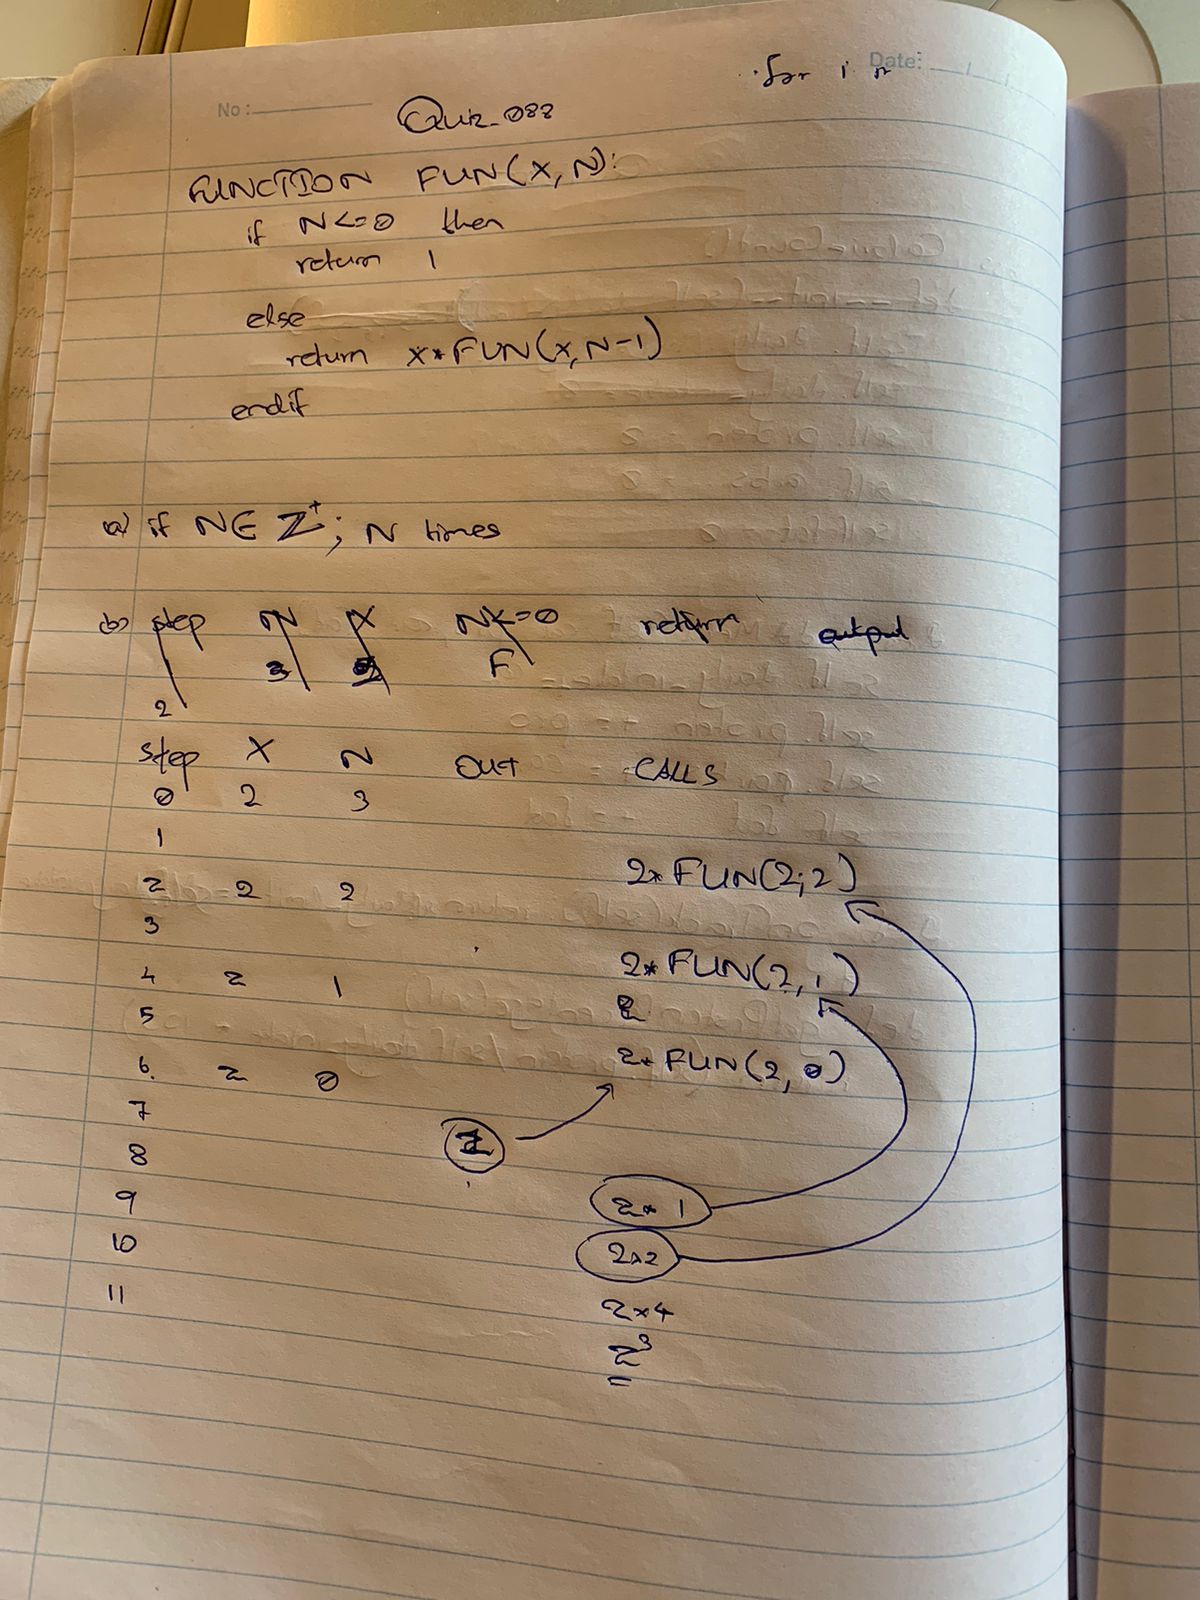 for i n Date:
No:
Quiz_088
FUNCTION FUN(X,N):
if N<=0 then
return 1
else
return X*FUN(X,N-1)
endif
(a) if N∈ Z⁺; N times
(b) step N X N<=0 return output
1 3 F
2
step X N OUT CALLS
0 2 3
1
2*FUN(2,2)
2 2 2
3
2*FUN(2,1)
4 2 1
5
2*FUN(2,0)
6. 2 0
7
1
8
9 2*1
10 2×2
11 2×4
2³